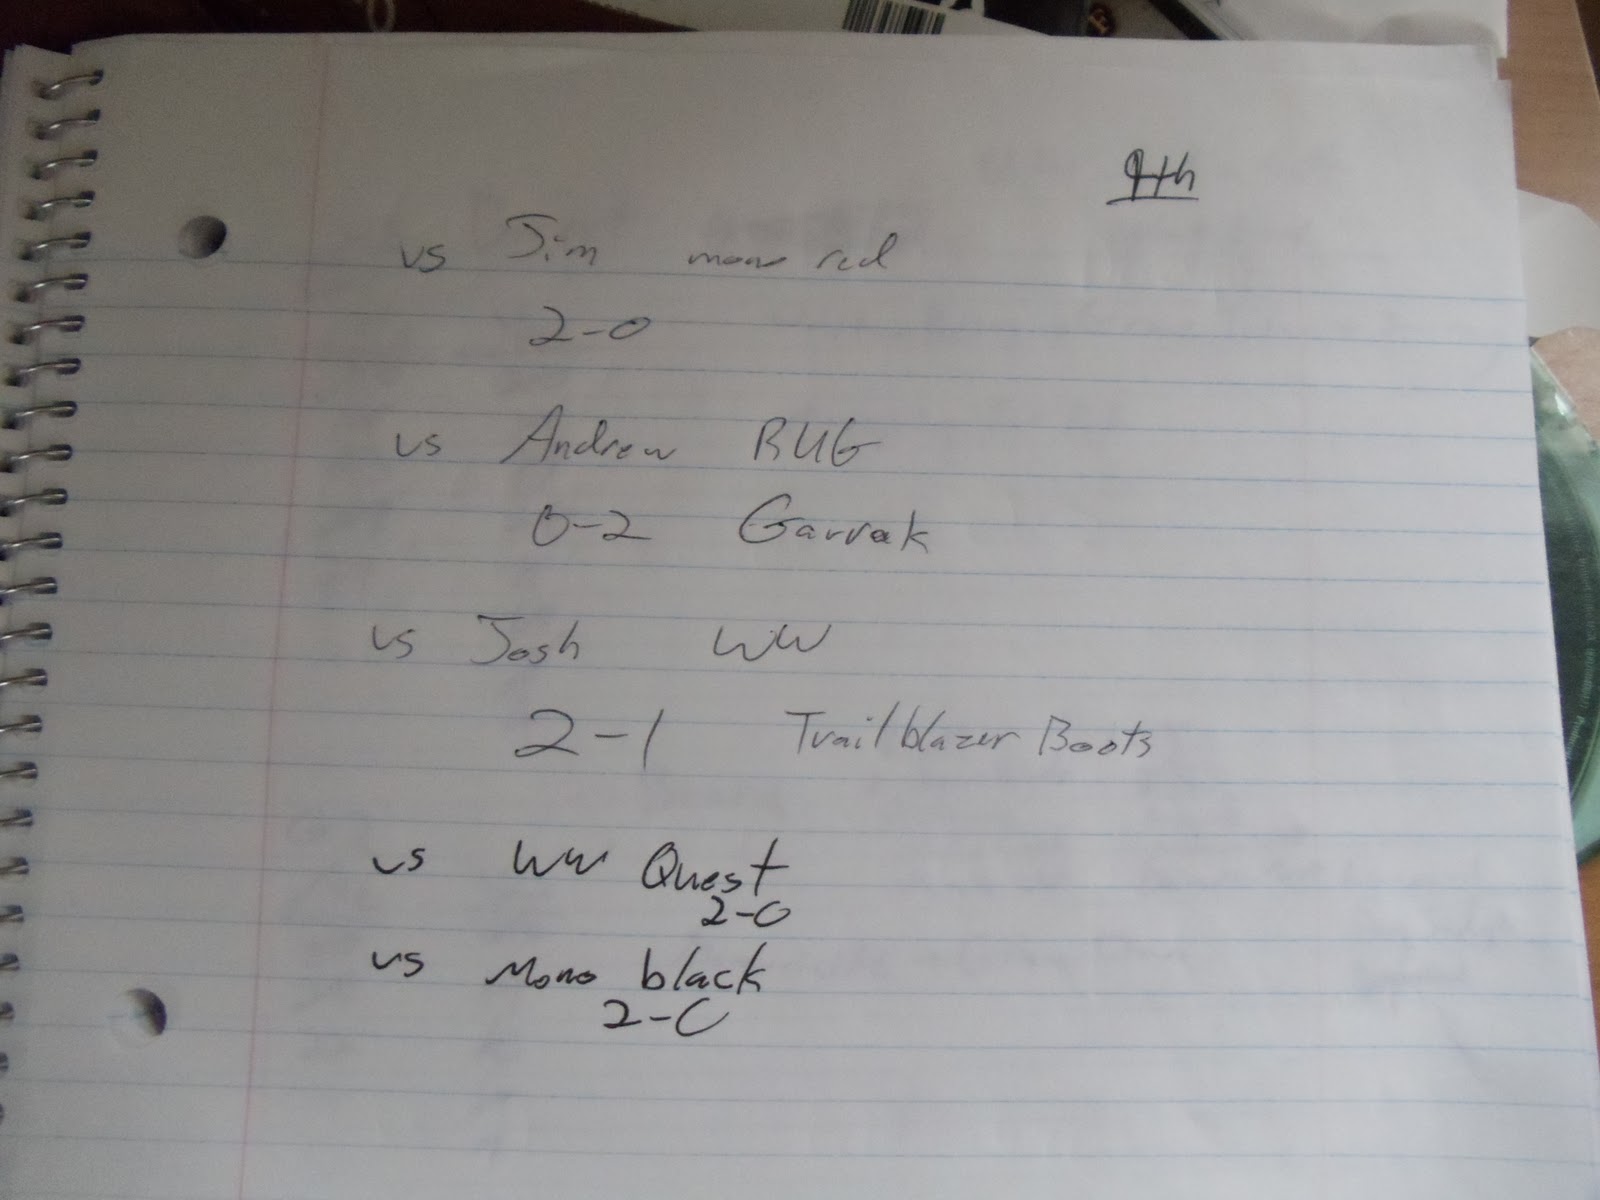 9th
vs Jim mono red
2-0
vs Andrew RUG
0-2 Garruk
vs Josh WW
2-1 Trailblazer Boots
vs WW Quest
2-0
vs Mono black
2-0